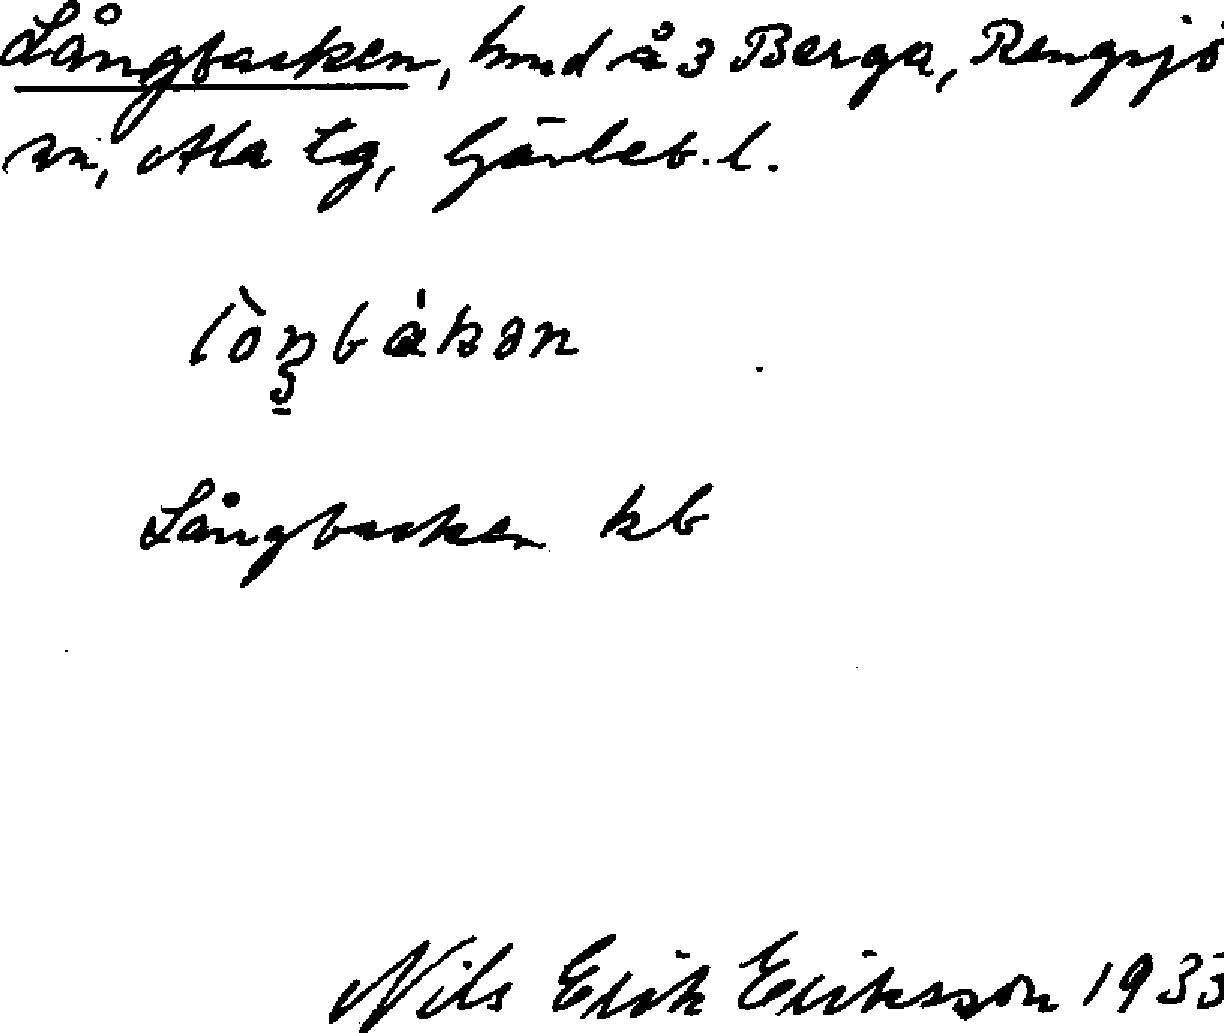 Långbacken, hmd å 3 Berga, Rengsjö
sn, Ala tg, Gävleb. l.
Långbacken kb
Nils Erik Eriksson 1933